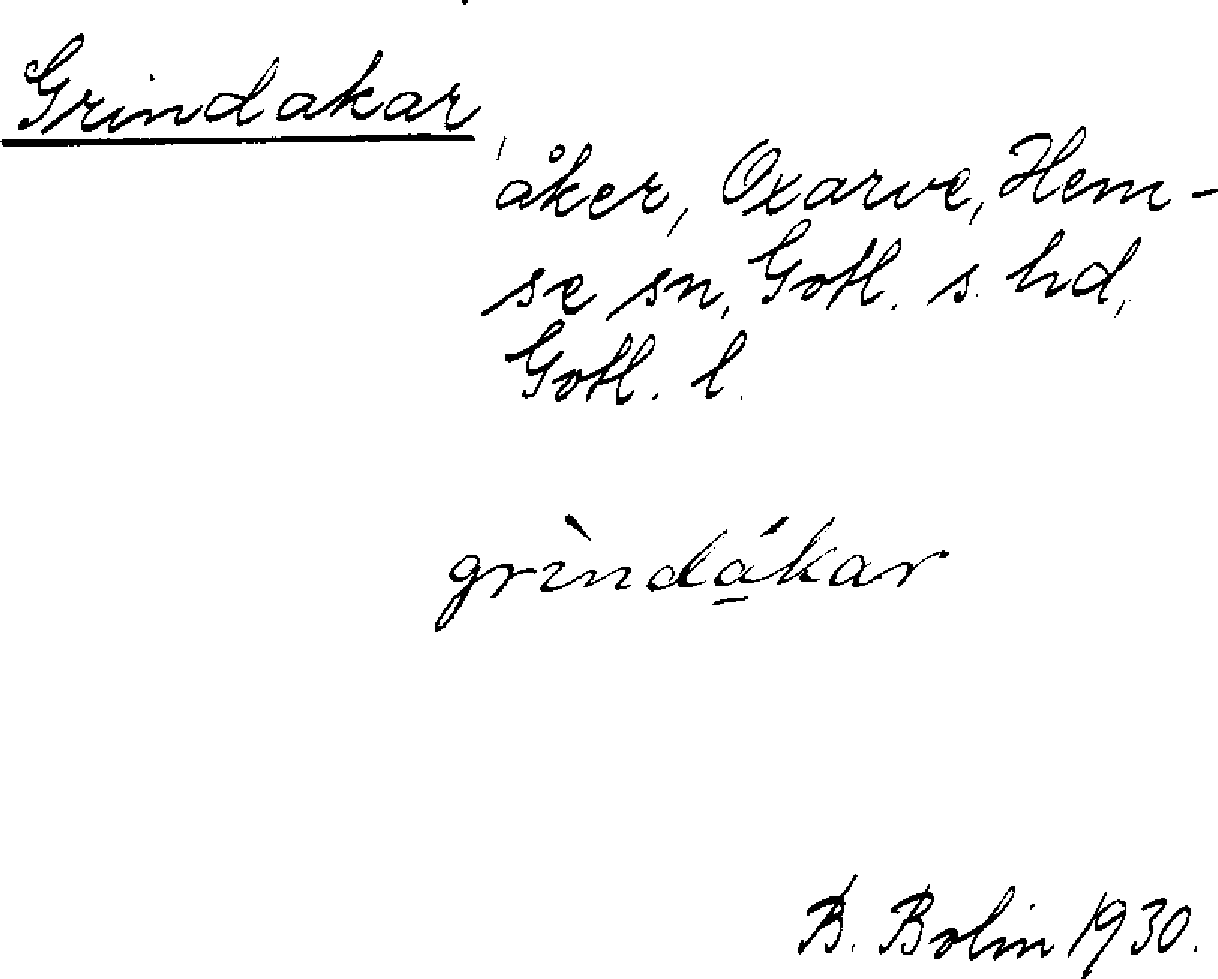 Grindakar
åker, Oxarve, Hem-
se sn, Gotl. s. hd,
Gotl. l.
grìndá̲kar
B. Bolin 1930.